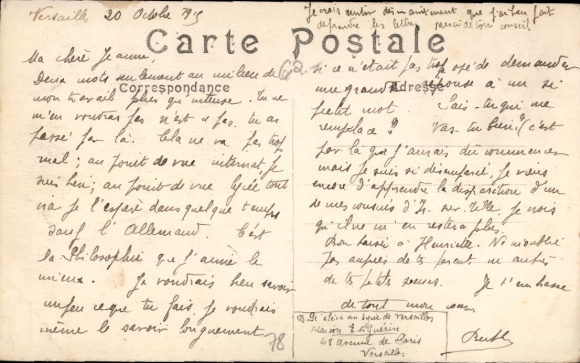 Versailles 20 Octobre 1915
Je crois sentir dès maintenant que j'ai bien fait
de prendre les lettres merci de ton conseil
Carte Postale
Correspondance
Adresse
Ma chère Jeanne,
Deux mots seulement au milieu de
mon travail plus qu'intense. Tu ne
m'en voudras pas n'est ce pas, tu as
passé par là. Cela ne va pas trop
mal ; au point de vue internat je
suis bien ; au point de vue lycée tout
ira je l'espère dans quelque temps
sauf l'Allemand. C'est
la Philosophie que j'aime le
mieux. Je voudrais bien savoir
un peu ce que tu fais, je voudrais
même le savoir longuement
78
si ce n'était pas trop osé de demander
une grande réponse à un si
petit mot. Sais-tu qui me
remplace ? Vas-tu bien ? (c'est
par là que j'aurais dû commencer
mais je suis si désemparée, je viens
encore d'apprendre la disparition d'un
de mes cousins d' je crois
qu'il ne m'en restera plus.
Bon baiser à Henriette. Ne m'oublie
pas auprès de tes parents ni auprès
de tes petites soeurs. Je t'embrasse
de tout mon coeur
élève au lycée de Versailles
Maison E. Guérin
48 avenue de Paris
Versailles